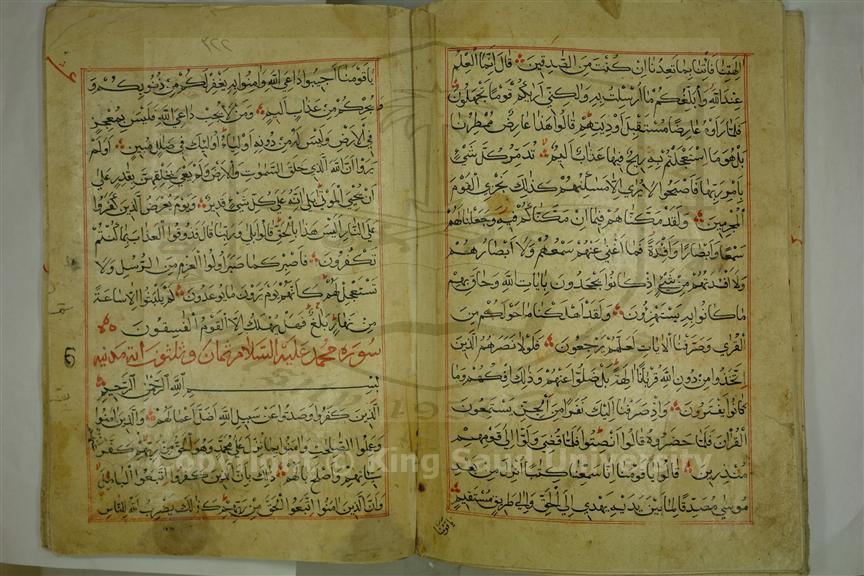 الهتنا فأتنا بما تعدنا ان كنت من الصدقين قال انما العلم
عند الله وأبلغكم ما ارسلت به ولكني اراكم قوما تجهلون
فلما راوه عارضا مستقبل اوديتهم قالوا هذا عارض ممطرنا
بل هو ما استعجلتم به ريح فيها عذاب اليم تدمر كل شئ
بامر ربها فأصبحوا لا يرى الا مساكنهم كذلك نجزي القوم
المجرمين ولقد مكناهم فيما ان مكناكم فيه وجعلنا لهم
سمعا وابصارا وافئدة فما اغنى عنهم سمعهم ولا ابصارهم
ولا افئدتهم من شئ اذ كانوا يجحدون بايات الله وحاق بهم
ما كانوا به يستهزؤن ولقد اهلكنا ما حولكم من
القرى وصرفنا الايات لعلهم يرجعون فلولا نصرهم الذين
اتخذوا من دون الله قربانا الهة بل ضلوا عنهم وذلك افكهم وما
كانوا يفترون واذ صرفنا اليك نفرا من الجن يستمعون
القران فلما حضروه قالوا انصتوا فلما قضي ولوا الى قومهم
منذرين قالوا يا قومنا انا سمعنا كتابا انزل من بعد
موسى مصدقا لما بين يديه يهدي الى الحق والى طريق مستقيم
يا قومنا
٣٢٢
يا قومنا اجيبوا داعي الله وامنوا به يغفر لكم من ذنوبكم و
يجركم من عذاب اليم ومن لا يجب داعي الله فليس بمعجز
في الارض وليس له من دونه اولياء اولئك في ضلل مبين اولم
يروا ان الله الذي خلق السموت والارض ولم يعي بخلقهن بقدر على
ان يحيي الموتى بلى انه على كل شئ قدير ويوم يعرض الذين كفروا
على النار اليس هذا بالحق قالوا بلى وربنا قال فذوقوا العذاب بما كنتم
تكفرون فاصبر كما صبر اولوا العزم من الرسل ولا
تستعجل لهم كانهم يوم يرون ما يوعدون لم يلبثوا الا ساعة
من نهار بلغ فهل يهلك الا القوم الفسقون
سورة محمد عليه السلام ثمان وثلثون اية مدنية
بسم الله الرحمن الرحيم
الذين كفروا وصدوا عن سبيل الله اضل اعمالهم والذين امنوا
وعملوا الصلحت وامنوا بما نزل على محمد وهو الحق من ربهم كفر عنهم
سياتهم واصلح بالهم ذلك بان الذين كفروا اتبعوا الباطل
وان الذين امنوا اتبعوا الحق من ربهم كذلك يضرب الله للناس
Copyright © King Saud University